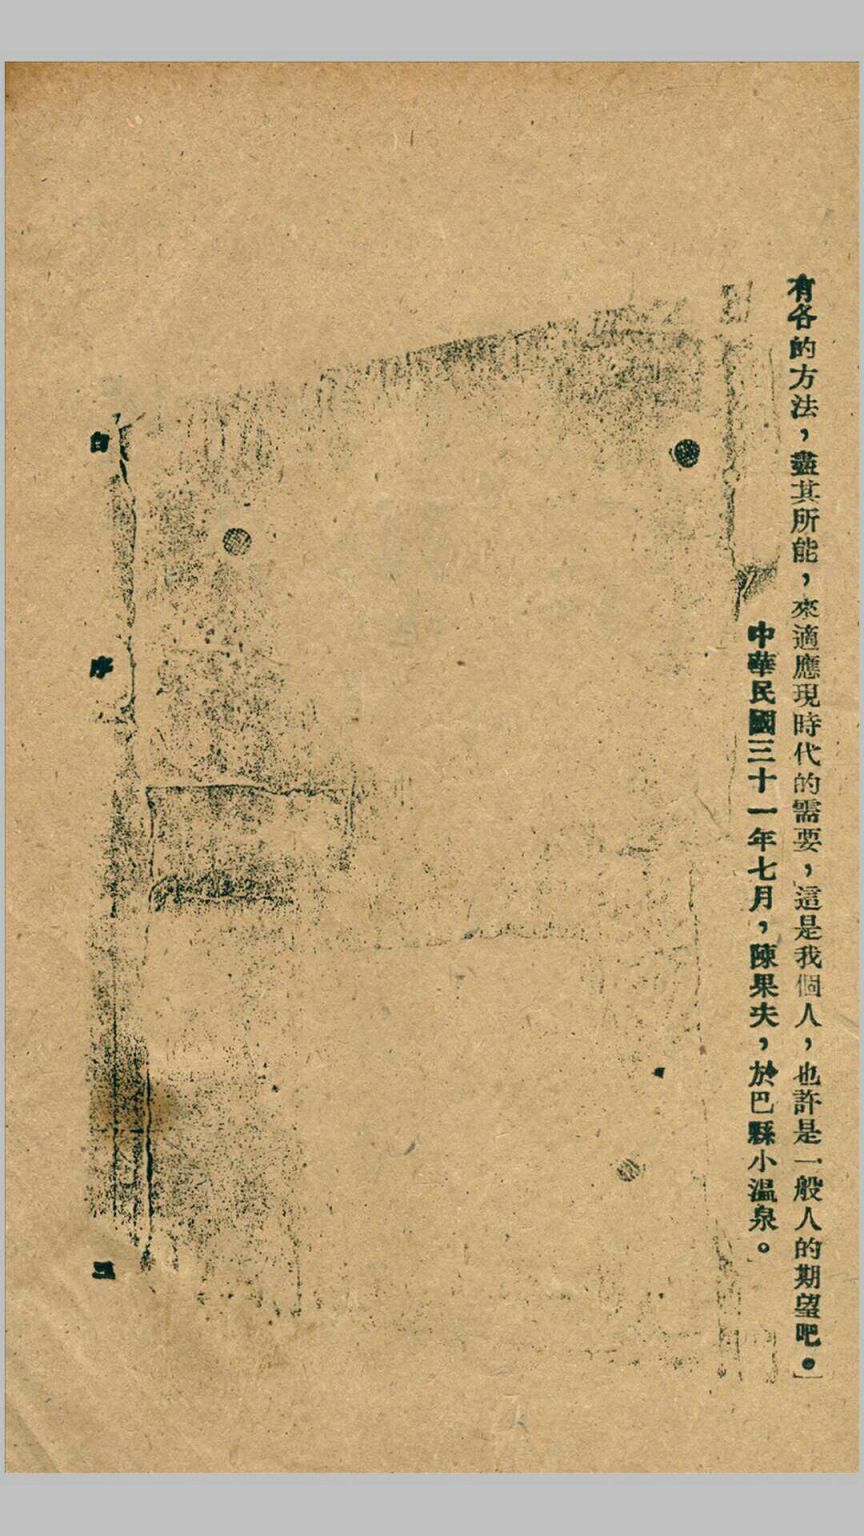 有各的方法，盡其所能，來適應現時代的需要，這是我個人，也許是一般人的期望吧。
中華民國三十一年七月，陳果夫，於巴縣小溫泉。
自序 三